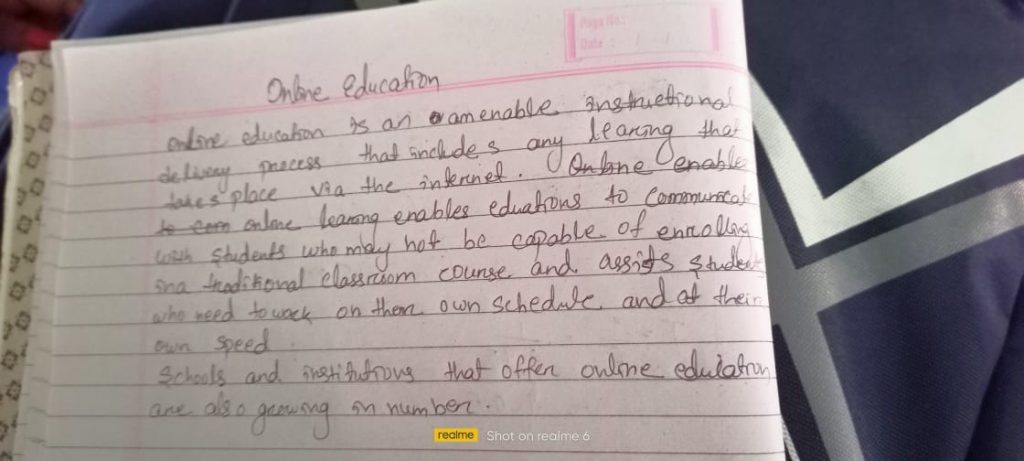 Page No:
Date : / /
Online Education
online education is an amenable instructional
delivery process that includes any learing that
takes place via the internet. Online enable
to com online learnng enables eduations to communicat
with students who may not be capable of enrolling
in a traditional classroom course and assists student
who need to work on their own schedule and at their
own speed.
Schools and institutions that offer online edulation
are also growing in number.
realme Shot on realme 6